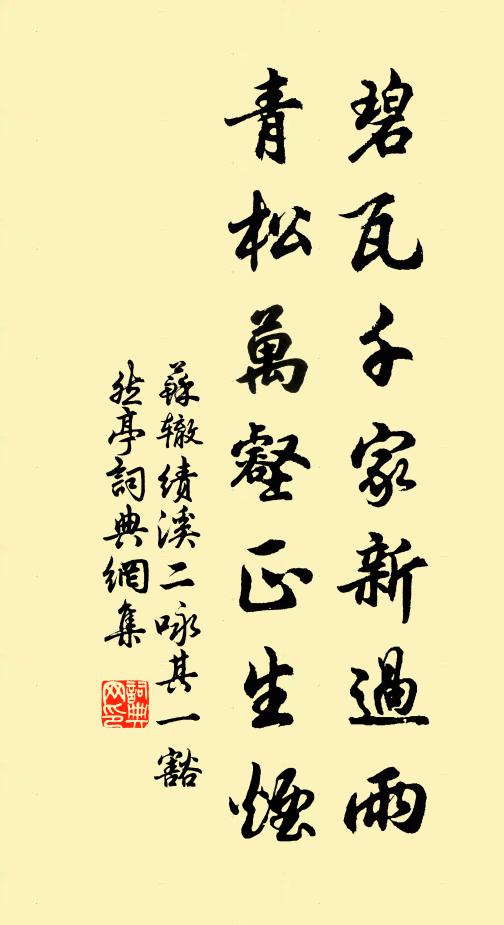 碧瓦千家新過雨
青松萬壑正生煙
蘇轍績溪二咏其一豁
然亭詞典網集
詞典
网印